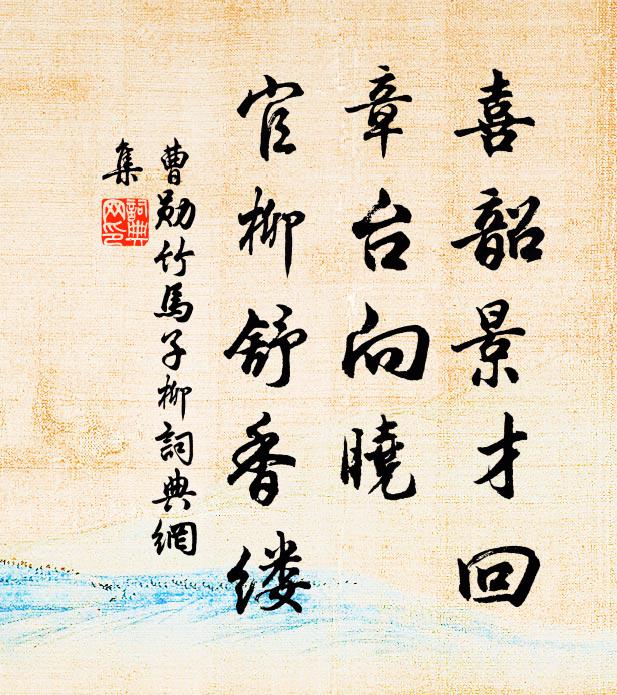 喜韶景才回
章台向曉
官柳舒香缕
曹勛竹馬子柳詞典網
集
詞典
网印